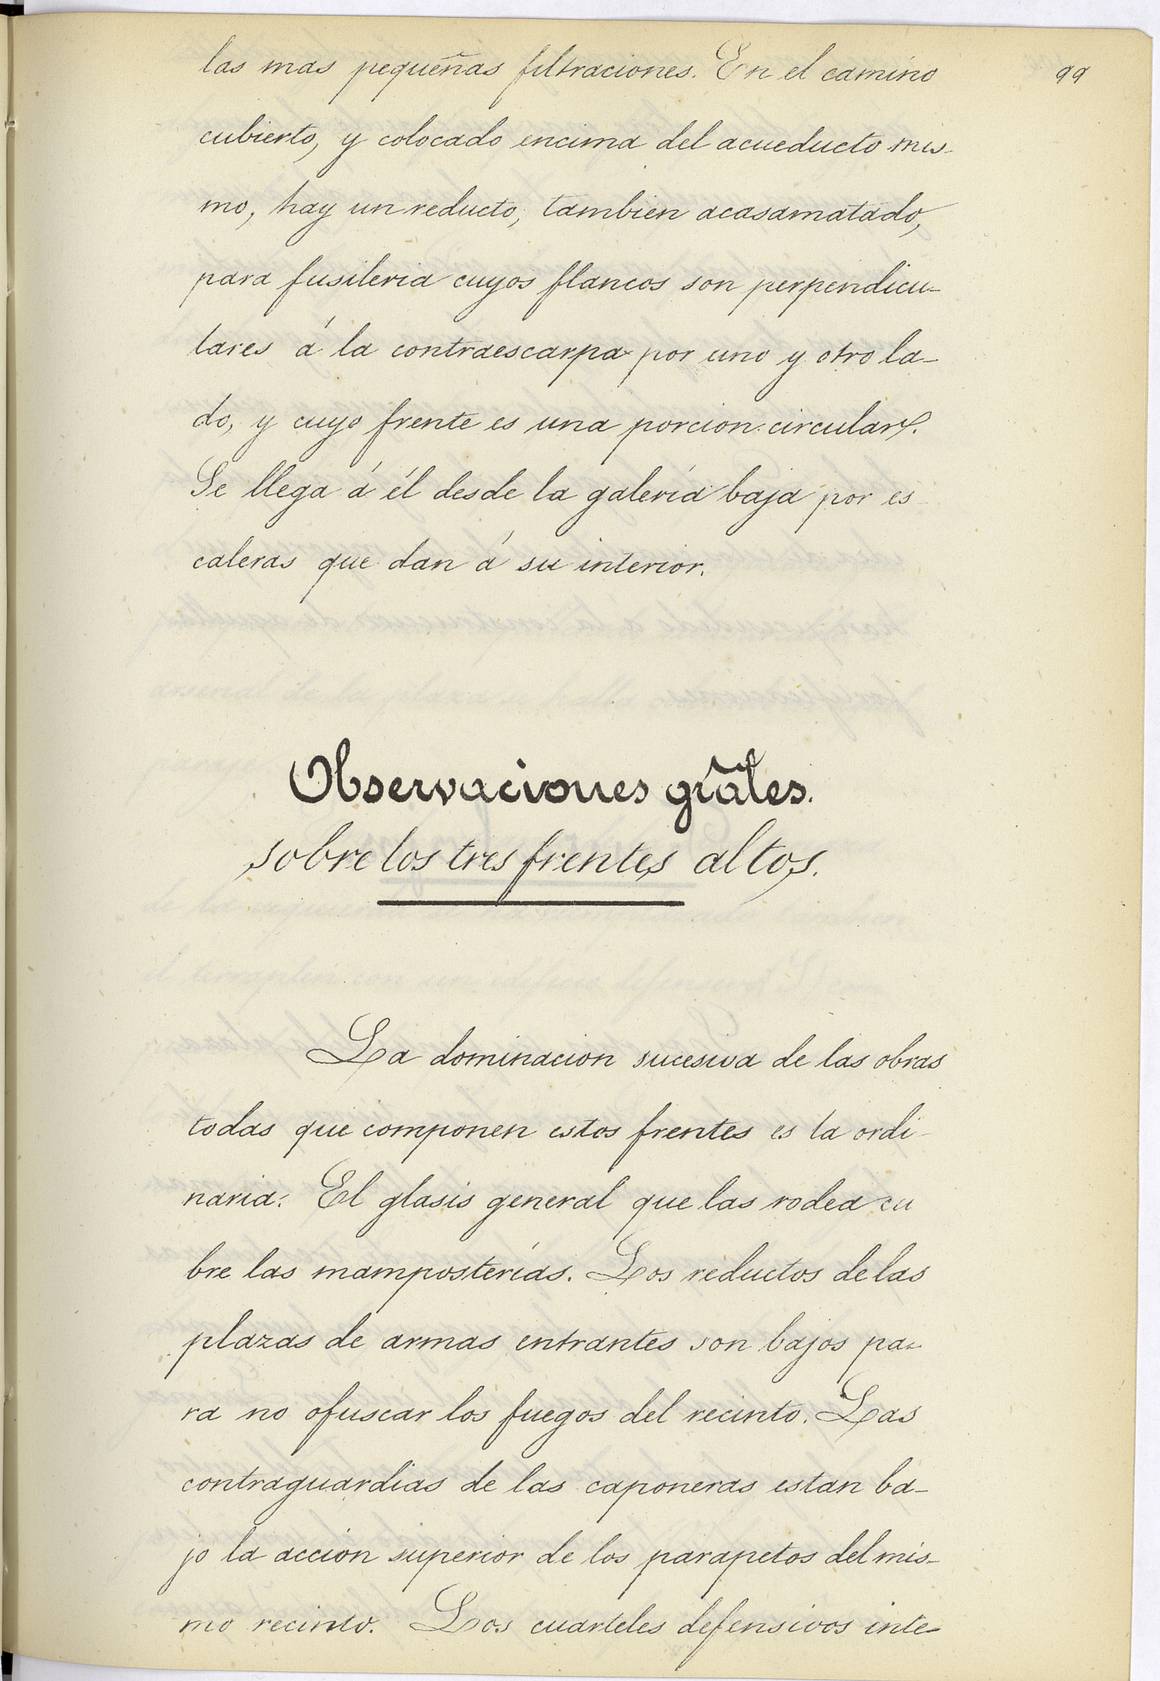 99
las mas pequeñas filtraciones. En el camino
cubierto, y colocado encima del acueducto mis-
mo, hay un reducto, tambien acasamatado,
para fusileria cuyos flancos son perpendicu-
lares á la contraescarpa por uno y otro la-
do, y cuyo frente es una porcion circular.
Se llega á él desde la galería baja por es
caleras que dan á su interior.
Observaciones grales.
sobre los tres frentes altos.
La dominacion sucesiva de las obras
todas que componen estos frentes es la ordi-
naria. El glasis general que las rodea cu
bre las mamposterías. Los reductos de las
plazas de armas entrantes son bajos pa-
ra no ofuscar los fuegos del recinto. Las
contraguardias de las caponeras estan ba-
jo la acción superior de los parapetos del mis-
mo recinto. Los cuarteles defensivos inte-